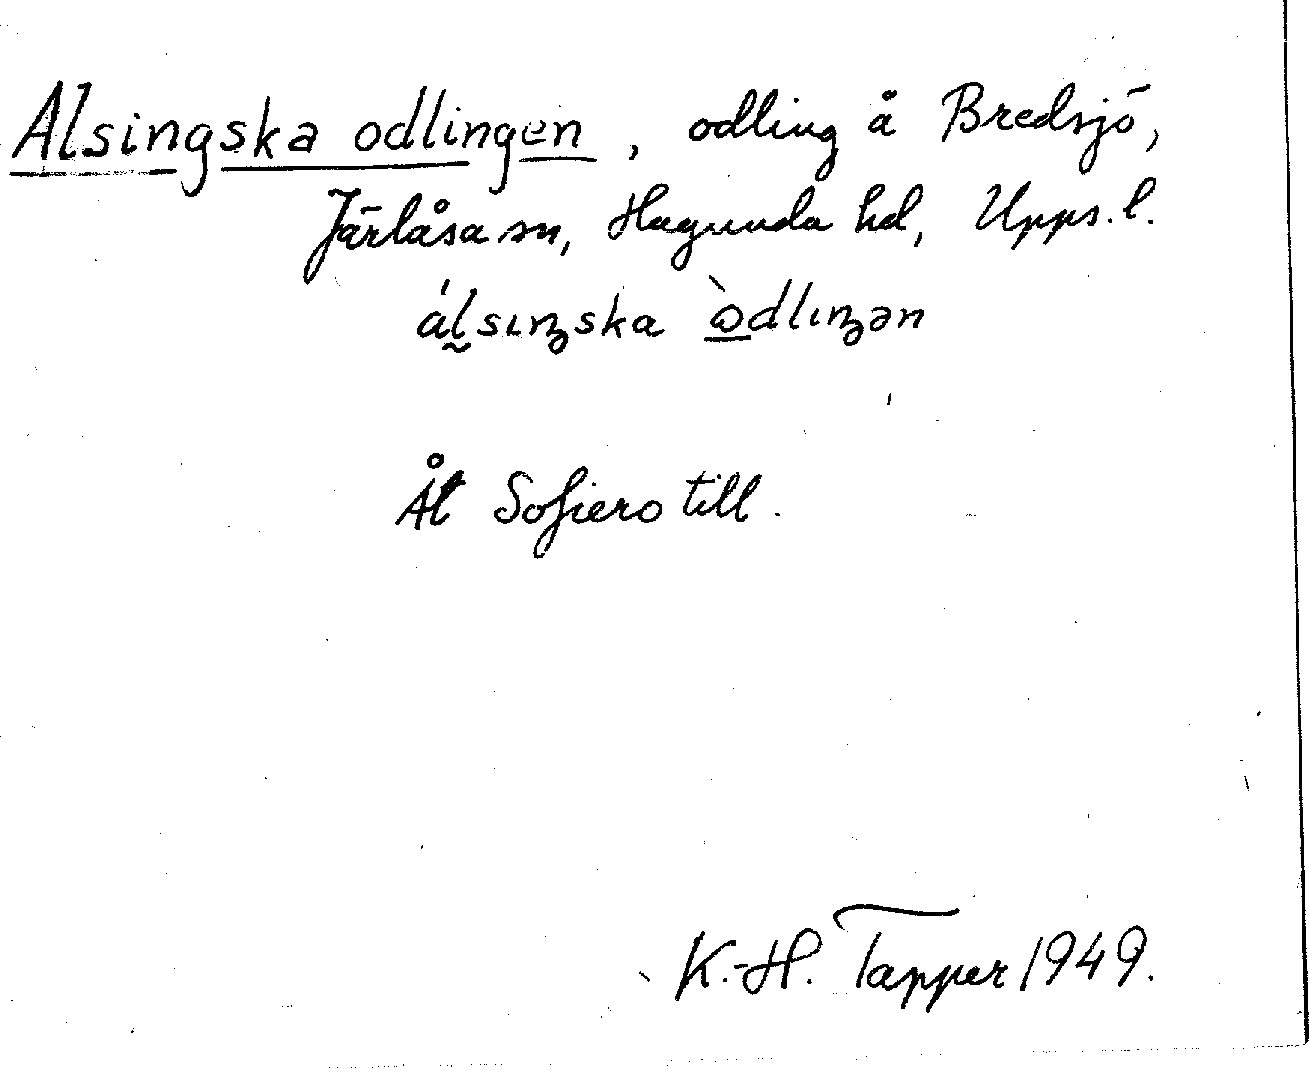 Alsingska odlingen, odling å Bredsjö,
Järlåsa sn, Hagunda hd, Upps. l.
ál̰sıŋska ὼ̲dlıŋən
Åt Sofiero till.
K.-H. Tapper 1949.